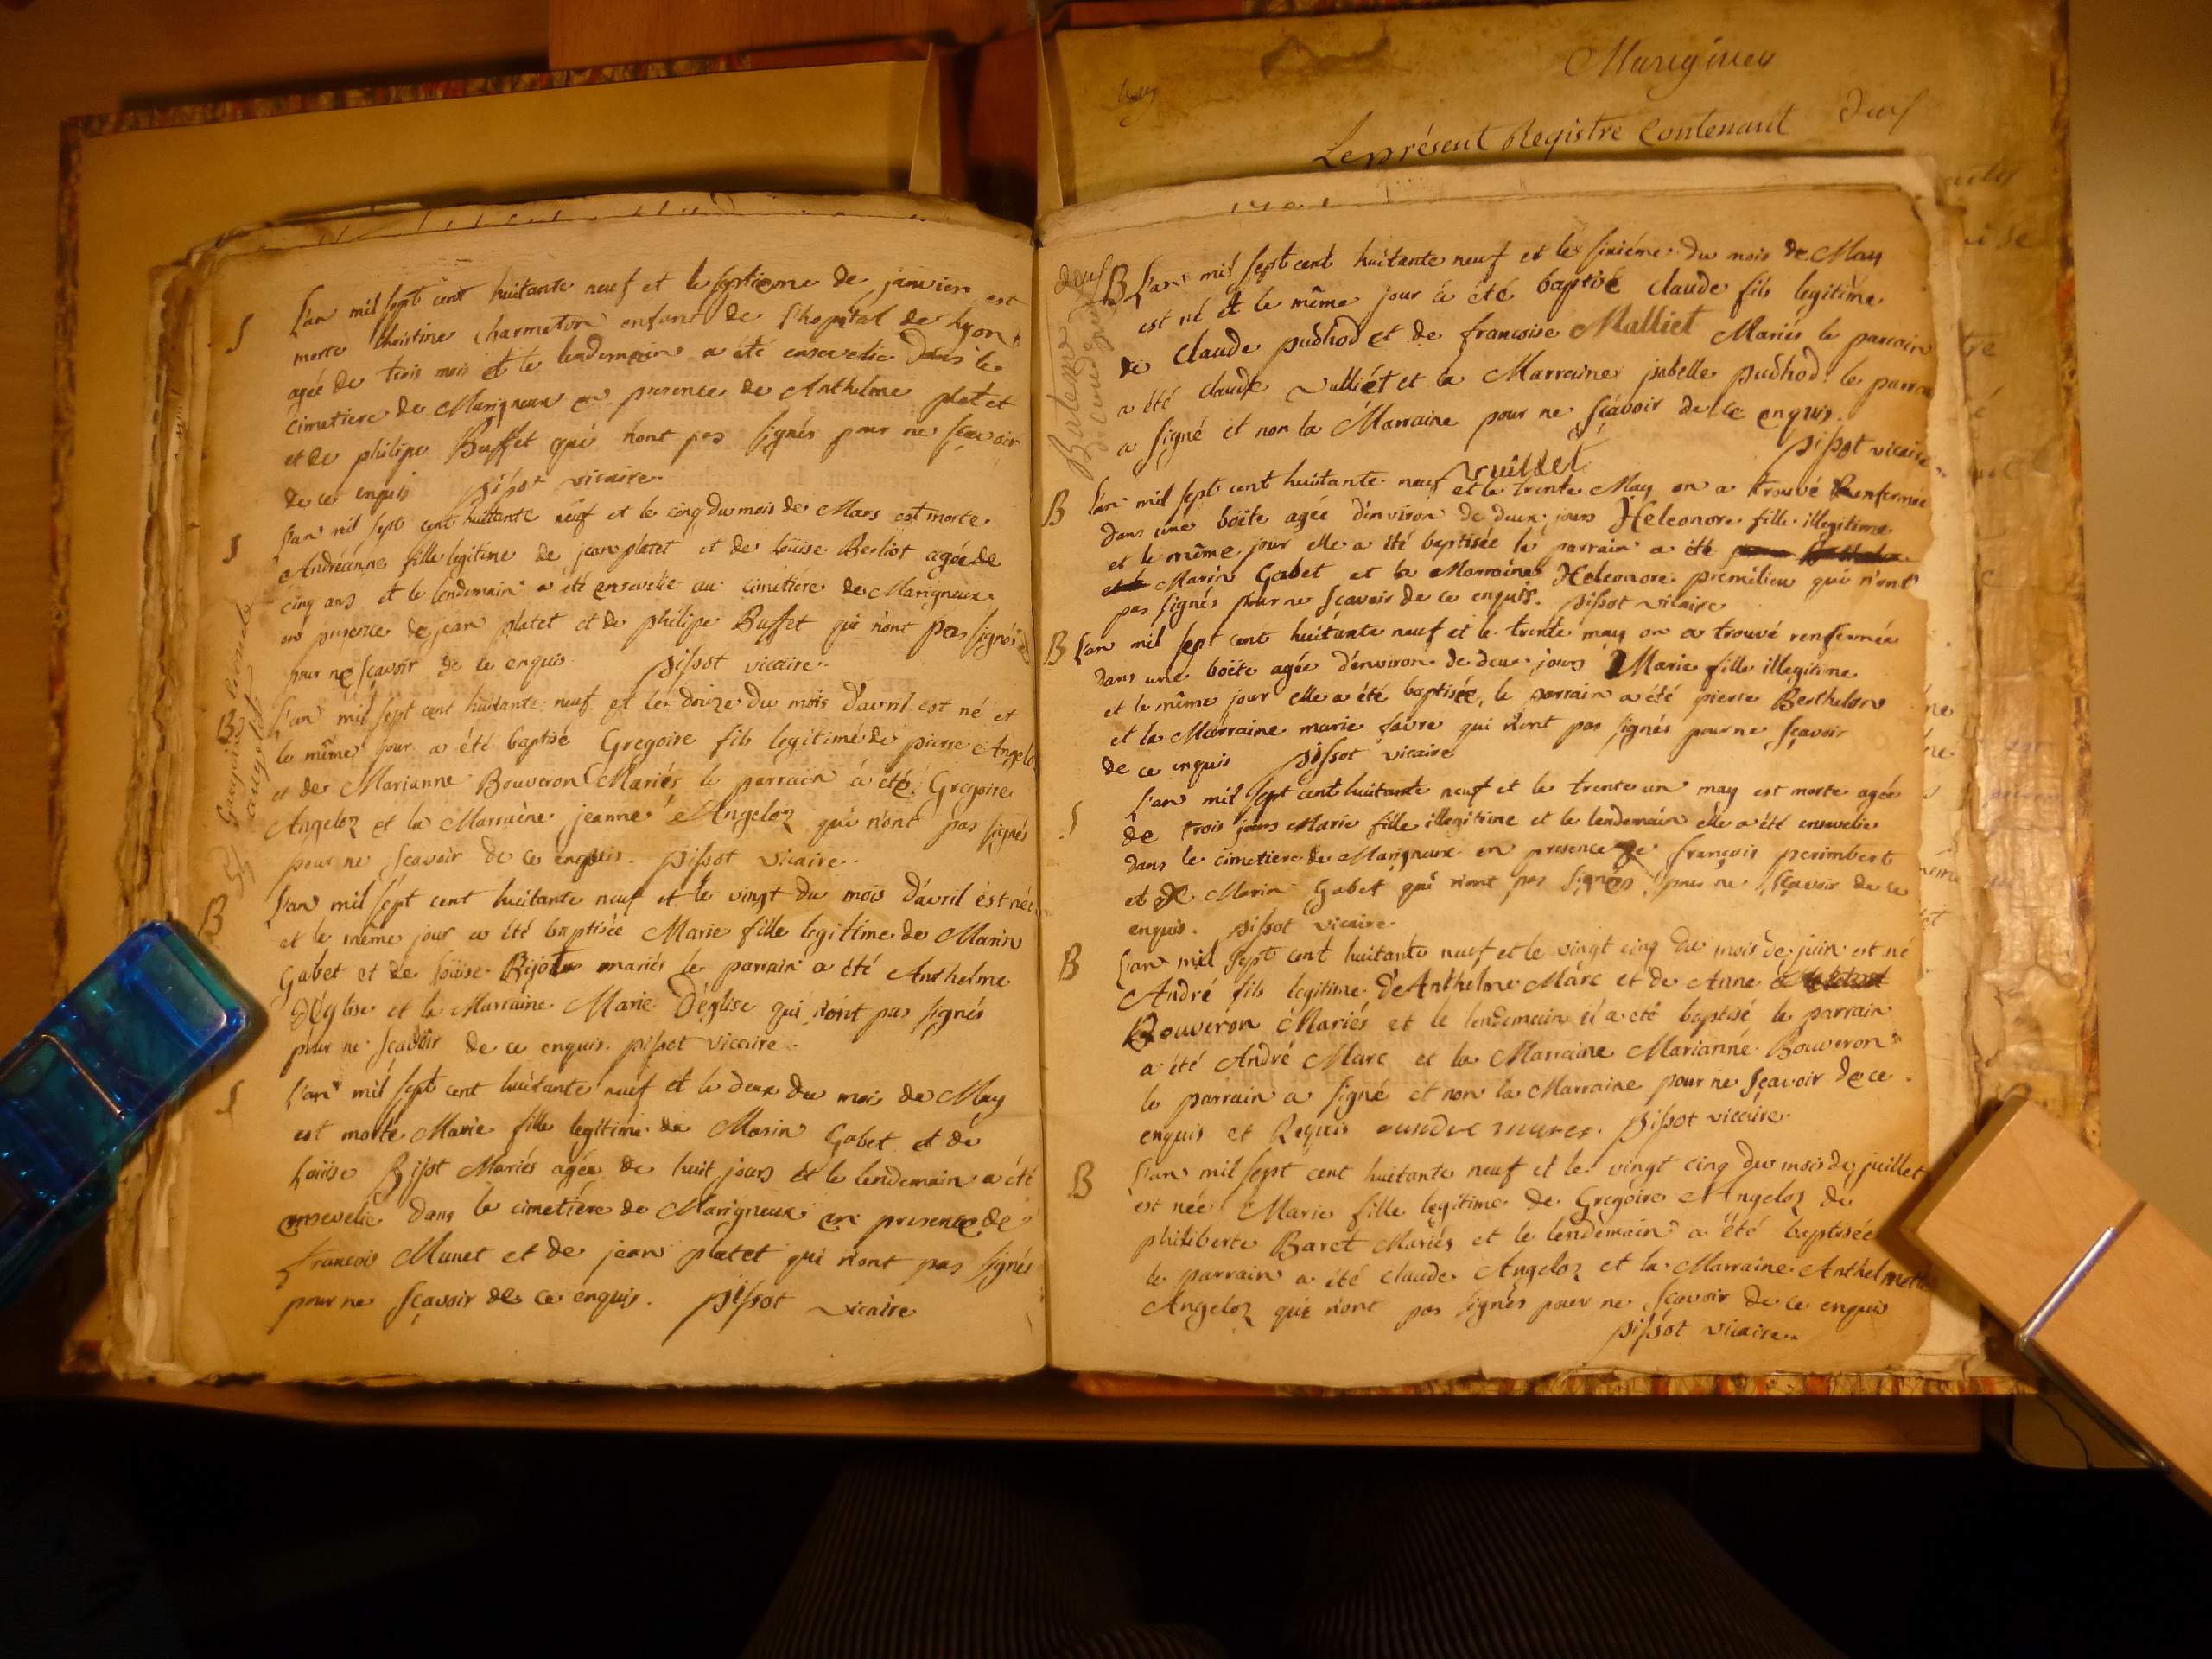 S
L'an mil sept cent huitante neuf et le septieme de janvier est
morte Christine Charmeton enfant de l'hopital de Lyon
agée de trois mois et le lendemain a été ensevelie dans le
cimetiere de Marigneux en presence de Anthelme platet
et de philipe Buffet qui n'ont pas signés pour ne sçavoir
de ce enquis pissot vicaire.
S
L'an mil sept cent huittante neuf et le cinq du mois de Mars est morte
Andréanne fille legitime de jean platet et de Loüise Berliot agée de
cinq ans et le lendemain a été ensevelie au cimetiére de Marigneux
en presence de jean platet et de philipe Buffet qui n'ont pas signés
pour ne sçavoir de ce enquis pissot vicaire.
B
L'an mil sept cent huitante neuf et le douze du mois d'avril est né et
le même jour a été baptisé Gregoire fils legitime de pierre Angelo
et de Marianne Bouveron Mariés le parrain a été Gregoire
Angeloz et la Marraine jeanne Angeloz qui n'ont pas signés
pour ne sçavoir de ce enquis. pissot vicaire.
B
L'an mil sept cent huitante neuf et le vingt du mois d'avril est née
et le même jour a été baptisée Marie fille legitime de Marin
Gabet et de Loüise Bijot mariés le parrain a été Anthelme
D'église et la Marraine Marie D'église qui n'ont pas signés
pour ne sçavoir de ce enquis. pissot vicaire.
S
L'an mil sept cent huitante neuf et le deux du mois de May
est morte Marie fille legitime de Marin Gabet et de
Loüise Bijot Mariés agée de huit jours et le lendemain a été
ensevelie dans le cimetiére de Marigneux en presence de
francois Munet et de jean platet qui n'ont pas signés
pour ne sçavoir de ce enquis. pissot vicaire
Marigneu
Le présent Registre Contenant
B
L'an mil sept cent huitante neuf et le sixiéme du mois de May
est né et le même jour a été baptisé claude fils legitime
de claude pudhod et de francoise Malliet Mariés le parrain
a été claude vulliét et la Marraine jsabelle pudhod. le parrain
a signé et non la Marraine pour ne sçavoir de ce enquis.
pissot vicaire
vuillet
B
L'an mil sept cent huitante neuf et le trente May on a trouvé renfermée
dans une boëte agée d'environ de deux jours Heleonore fille illegitime
et le même jour elle a été baptisée le parrain a été
Marin Gabet et la Marraine Heleonore premilieu qui n'ont
pas signés pour ne sçavoir de ce enquis. pissot vicaire
B
L'an mil sept cent huitante neuf et le trente may on a trouvé renfermée
dans une boëte agée d'environ de deux jours Marie fille illegitime
et le même jour elle a été baptisée, le parrain a été pierre Berthelon
et la Marraine marie favre qui n'ont pas signés pour ne sçavoir
de ce enquis pissot vicaire
S
L'an mil sept cent huitante neuf et le trente un may est morte agée
de trois jours Marie fille illegitime et le lendemain elle a été ensevelie
dans le cimetiere de Marigneux en presence de françois perimbert
et de Marin Gabet qui n'ont pas signés pour ne sçavoir de ce
enquis. pissot vicaire.
B
L'an mil sept cent huitante neuf et le vingt cinq du mois de juin est né
André fils legitime d'Anthelme Marc et de Anne
Bouveron Mariés et le lendemain il a été baptisé le parrain
a été André Marc et la Marraine Marianne Bouveron
le parrain a signé et non la Marraine pour ne sçavoir de ce
enquis et Requis pissot vicaire.
B
L'an mil sept cent huitante neuf et le vingt cinq du mois de juillet
est née Marie fille legitime de Gregoire Angeloz de
philiberte Baret Mariés et le lendemain a été baptisée
le parrain a été claude Angeloz et la Marraine Anthelmette
Angeloz qui n'ont pas signés pour ne sçavoir de ce enquis
pissot vicaire.